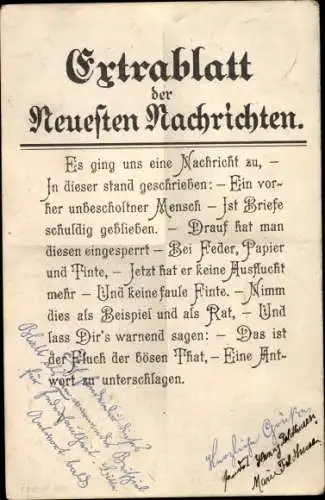 Extrablatt
der
Neuesten Nachrichten.
Es ging uns eine Nachricht zu, –
In dieser stand geschrieben: – Ein vor-
her unbescholtner Mensch – Ist Briefe
schuldig geblieben. – Drauf hat man
diesen eingesperrt – Bei Feder, Papier
und Tinte, – Jetzt hat er keine Ausflucht
mehr – Und keine faule Finte. – Nimm
dies als Beispiel und als Rat, – Und
lass Dir's warnend sagen: – Das ist
der Fluch der bösen That, – Eine Ant-
wort zu unterschlagen.
Antwort bald
Herzliche Grüße